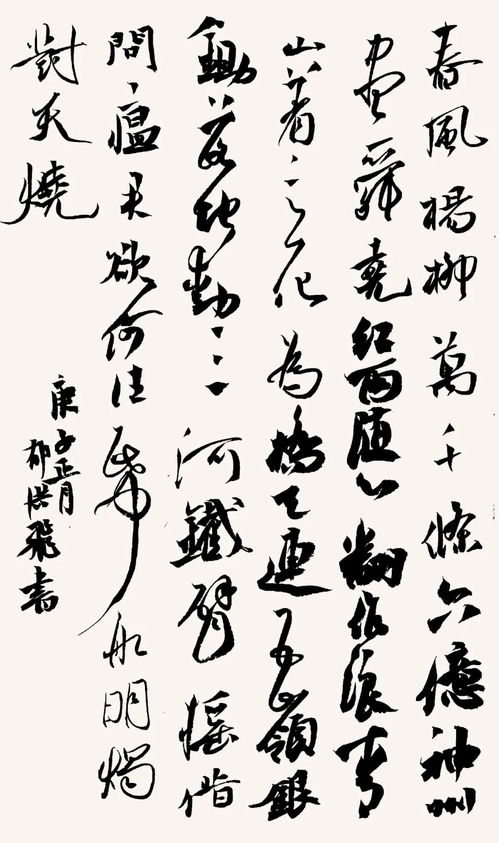 春風楊柳萬千條六億神州
盡舜堯紅雨隨心翻作浪青
山着意化為橋天連五嶺銀
鋤落地動三河鐵臂搖借
問瘟君欲何往紙船明燭
對天燒
庚子正月
郁洪飛書